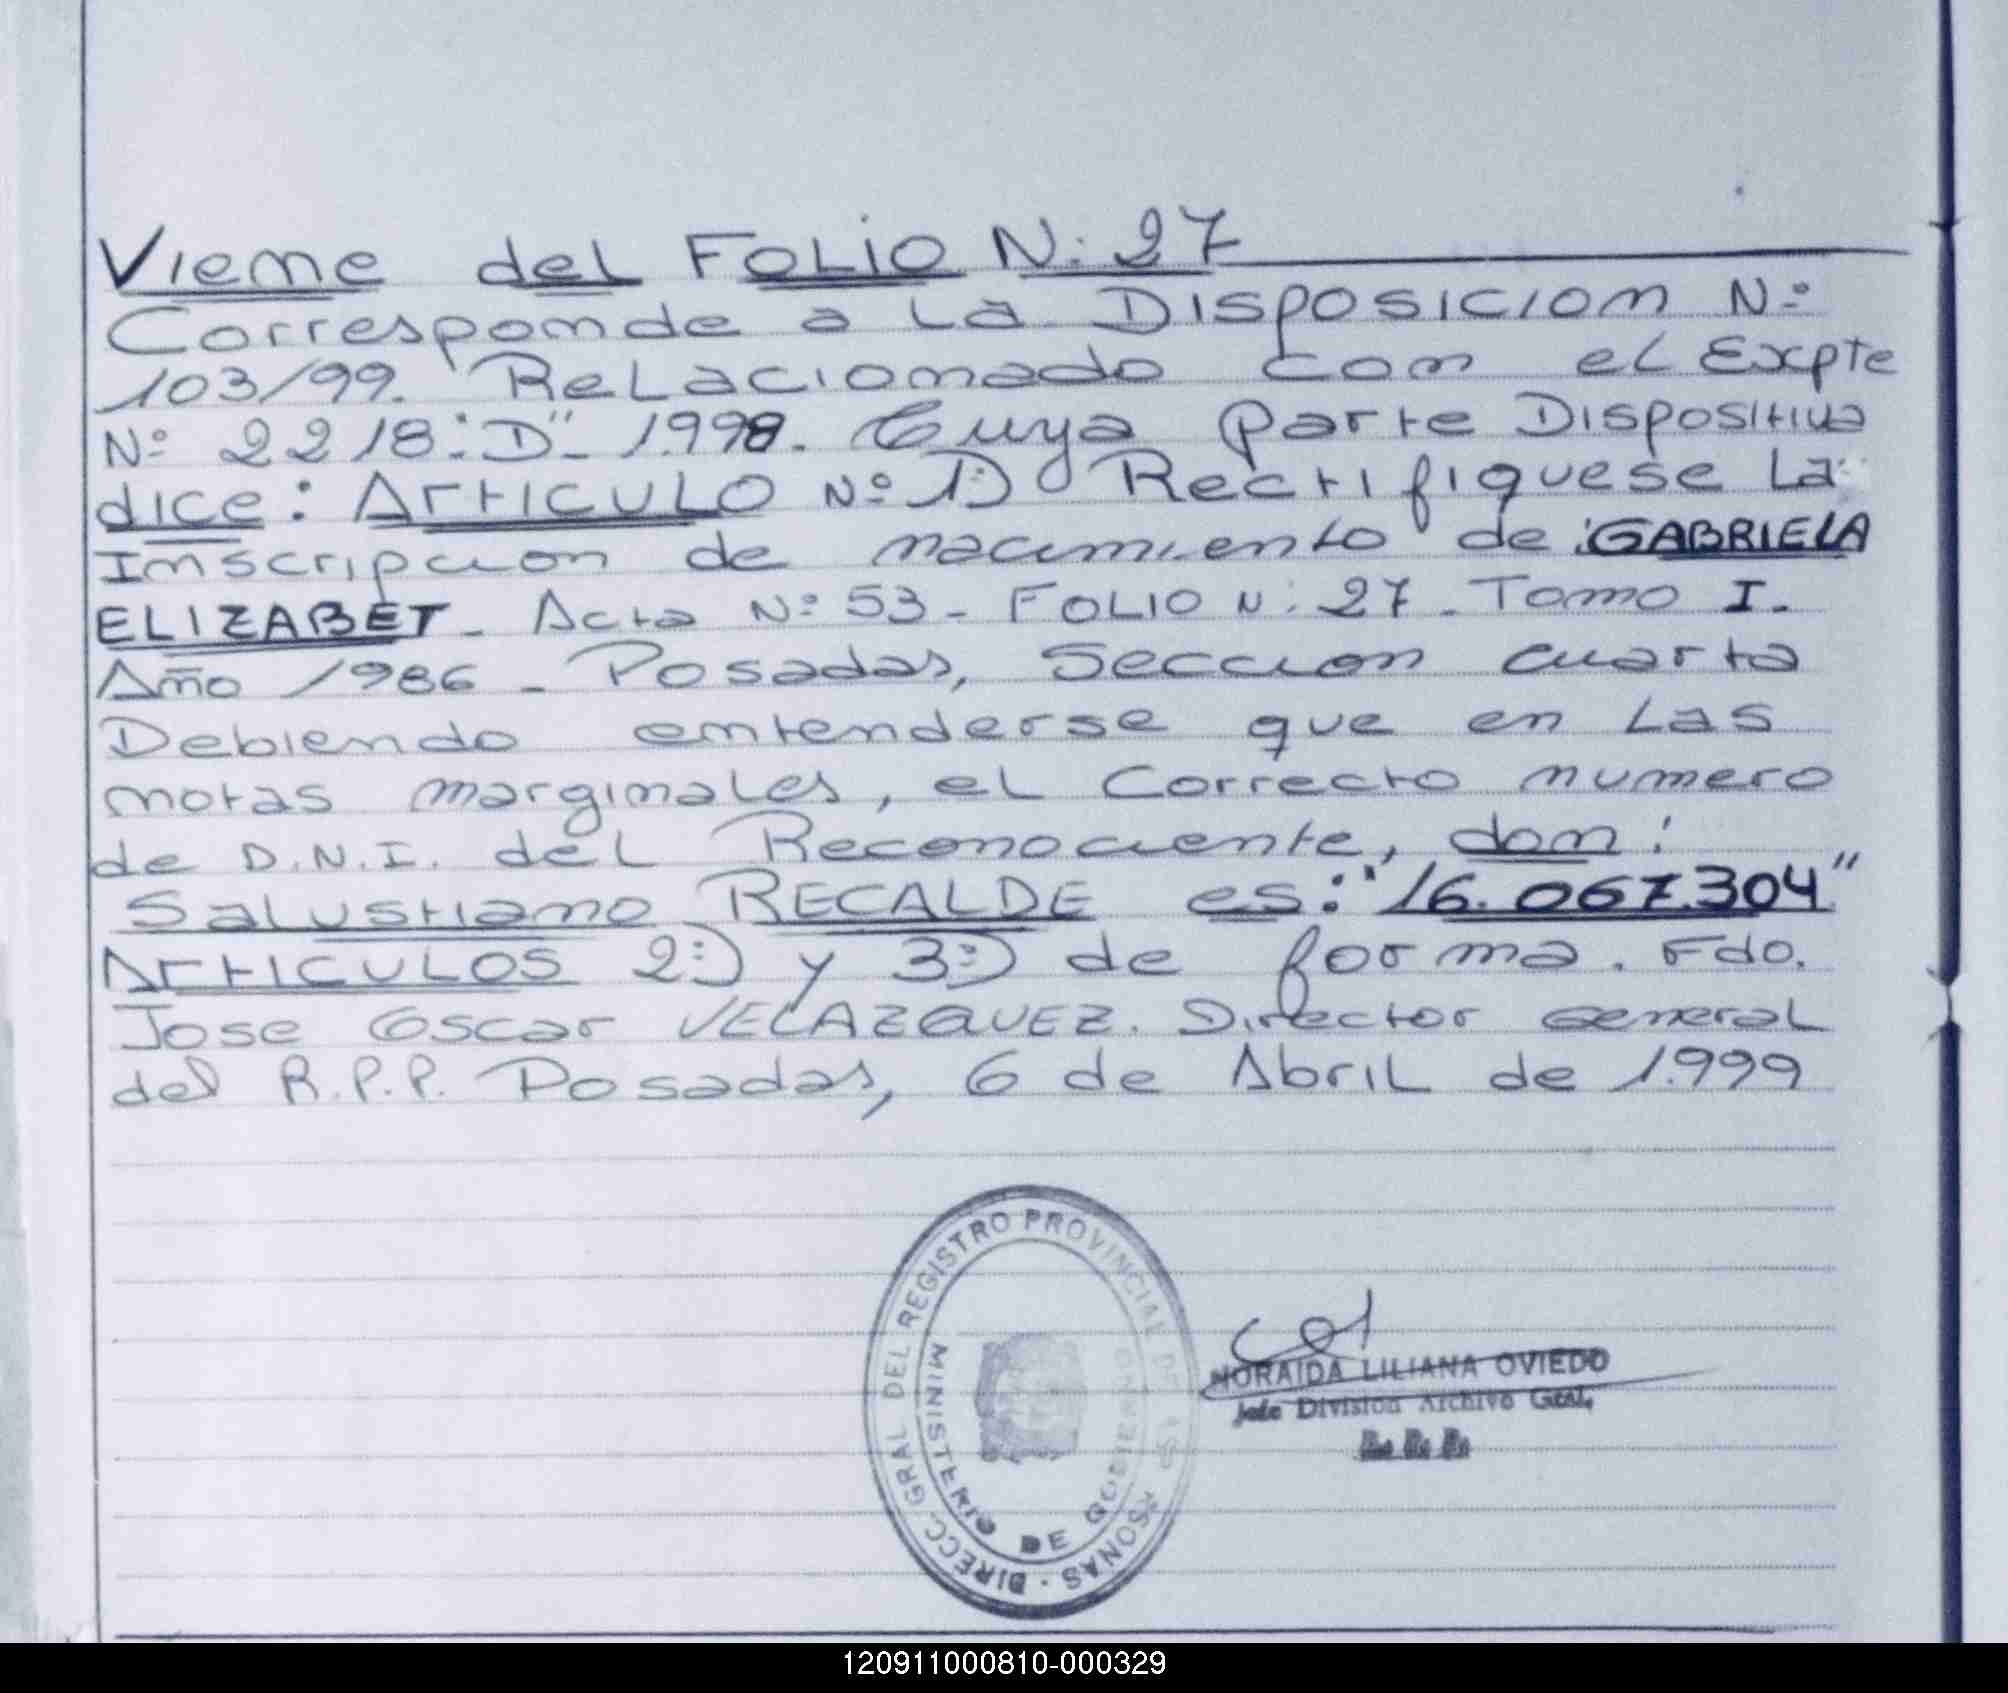 Viene del FOLIO N: 27
Corresponde a La Disposicion Nº
103/99. Relacionado con el Expte
Nº 2218 "D" - 1.998. Cuya parte Dispositiva
dice: ARTICULO Nº 1º) Rectifiquese La
Inscripcion de nacimiento de GABRIELA
ELIZABET - Acta Nº 53 - FOLIO N: 27 - Tomo I.
Año 1986 - Posadas, Seccion cuarta
Debiendo entenderse que en Las
notas marginales, el Correcto numero
de D.N.I. del Reconociente, don:
Salustiano RECALDE es: "16.067.304"
ARTICULOS 2º) y 3º) de forma. Fdo.
Jose Oscar VELAZQUEZ. Director General
del R.P.P. Posadas, 6 de Abril de 1.999
DIRECC. GRAL DEL REGISTRO PROVINCIAL DE LAS PERSONAS
MINISTERIO DE GOBIERNO
NORAIDA LILIANA OVIEDO
Jefe Division Archivo Gral.
R. P. P.
120911000810-000329